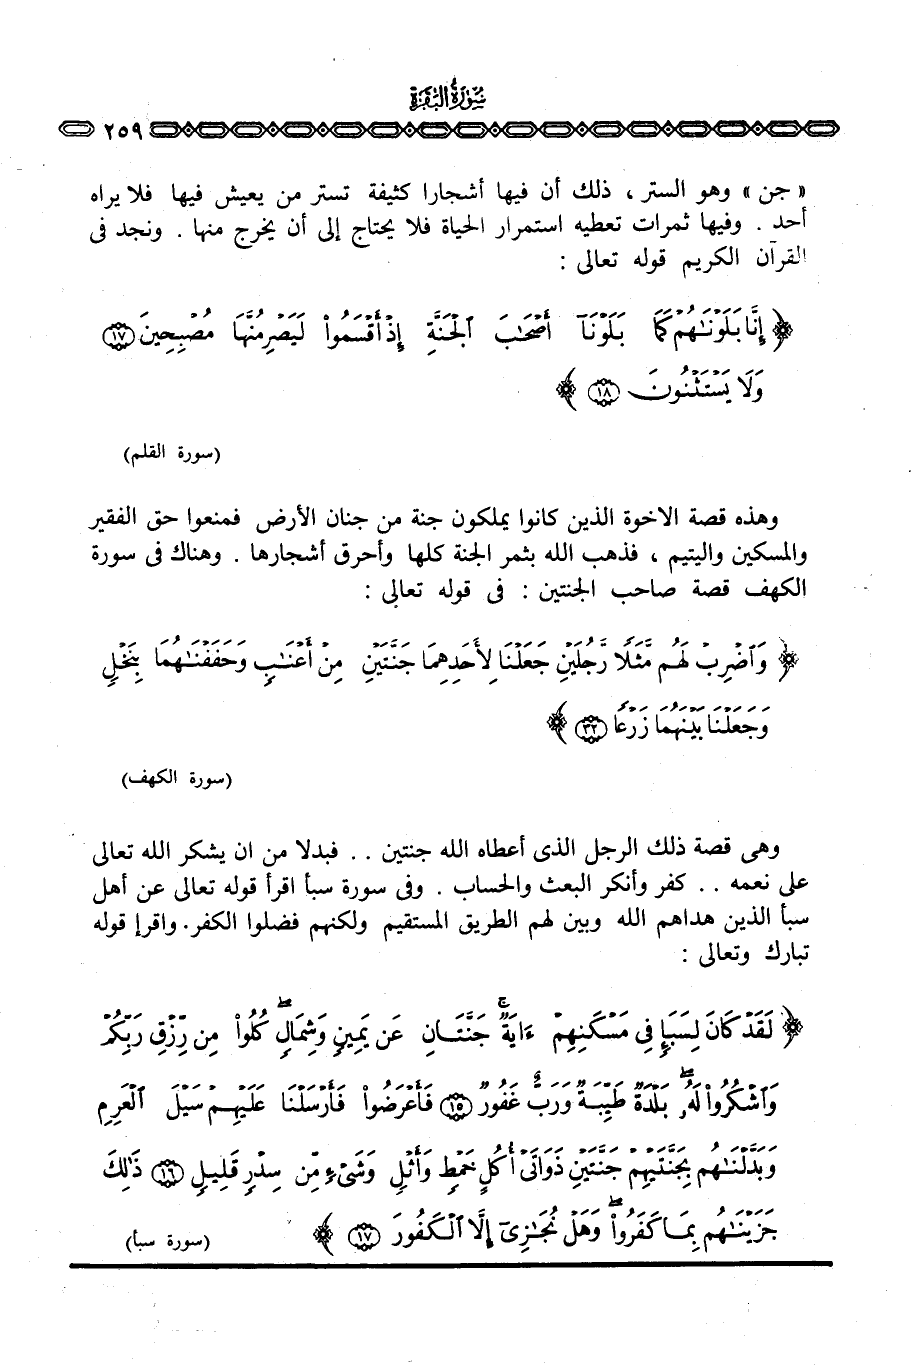 سورة البقرة
٢٥٩
« جن » وهو الستر ، ذلك أن فيها أشجارا كثيفة تستر من يعيش فيها فلا يراه
أحد . وفيها ثمرات تعطيه استمرار الحياة فلا يحتاج إلى أن يخرج منها . ونجد فى
القرآن الكريم قوله تعالى :
﴿ إِنَّا بَلَوْنَٰهُمْ كَمَا بَلَوْنَآ أَصْحَٰبَ ٱلْجَنَّةِ إِذْ أَقْسَمُوا۟ لَيَصْرِمُنَّهَا مُصْبِحِينَ ١٧
وَلَا يَسْتَثْنُونَ ١٨ ﴾
(سورة القلم)
وهذه قصة الاخوة الذين كانوا يملكون جنة من جنان الأرض فمنعوا حق الفقير
والمسكين واليتيم ، فذهب الله بثمر الجنة كلها وأحرق أشجارها . وهناك فى سورة
الكهف قصة صاحب الجنتين : فى قوله تعالى :
﴿ وَٱضْرِبْ لَهُم مَّثَلًا رَّجُلَيْنِ جَعَلْنَا لِأَحَدِهِمَا جَنَّتَيْنِ مِنْ أَعْنَٰبٍ وَحَفَفْنَٰهُمَا بِنَخْلٍ
وَجَعَلْنَا بَيْنَهُمَا زَرْعًا ٣٢ ﴾
(سورة الكهف)
وهى قصة ذلك الرجل الذى أعطاه الله جنتين . . فبدلا من ان يشكر الله تعالى
على نعمه . . كفر وأنكر البعث والحساب . وفى سورة سبأ اقرأ قوله تعالى عن أهل
سبأ الذين هداهم الله وبين لهم الطريق المستقيم ولكنهم فضلوا الكفر. واقرإ قوله
تبارك وتعالى :
﴿ لَقَدْ كَانَ لِسَبَإٍ فِى مَسْكَنِهِمْ ءَايَةٌ ۚ جَنَّتَانِ عَن يَمِينٍ وَشِمَالٍ ۖ كُلُوا۟ مِن رِّزْقِ رَبِّكُمْ
وَٱشْكُرُوا۟ لَهُۥ ۚ بَلْدَةٌ طَيِّبَةٌ وَرَبٌّ غَفُورٌ ١٥ فَأَعْرَضُوا۟ فَأَرْسَلْنَا عَلَيْهِمْ سَيْلَ ٱلْعَرِمِ
وَبَدَّلْنَٰهُم بِجَنَّتَيْهِمْ جَنَّتَيْنِ ذَوَاتَىْ أُكُلٍ خَمْطٍ وَأَثْلٍ وَشَىْءٍ مِّن سِدْرٍ قَلِيلٍ ١٦ ذَٰلِكَ
جَزَيْنَٰهُم بِمَا كَفَرُوا۟ ۖ وَهَلْ نُجَٰزِىٓ إِلَّا ٱلْكَفُورَ ١٧ ﴾ (سورة سبأ)